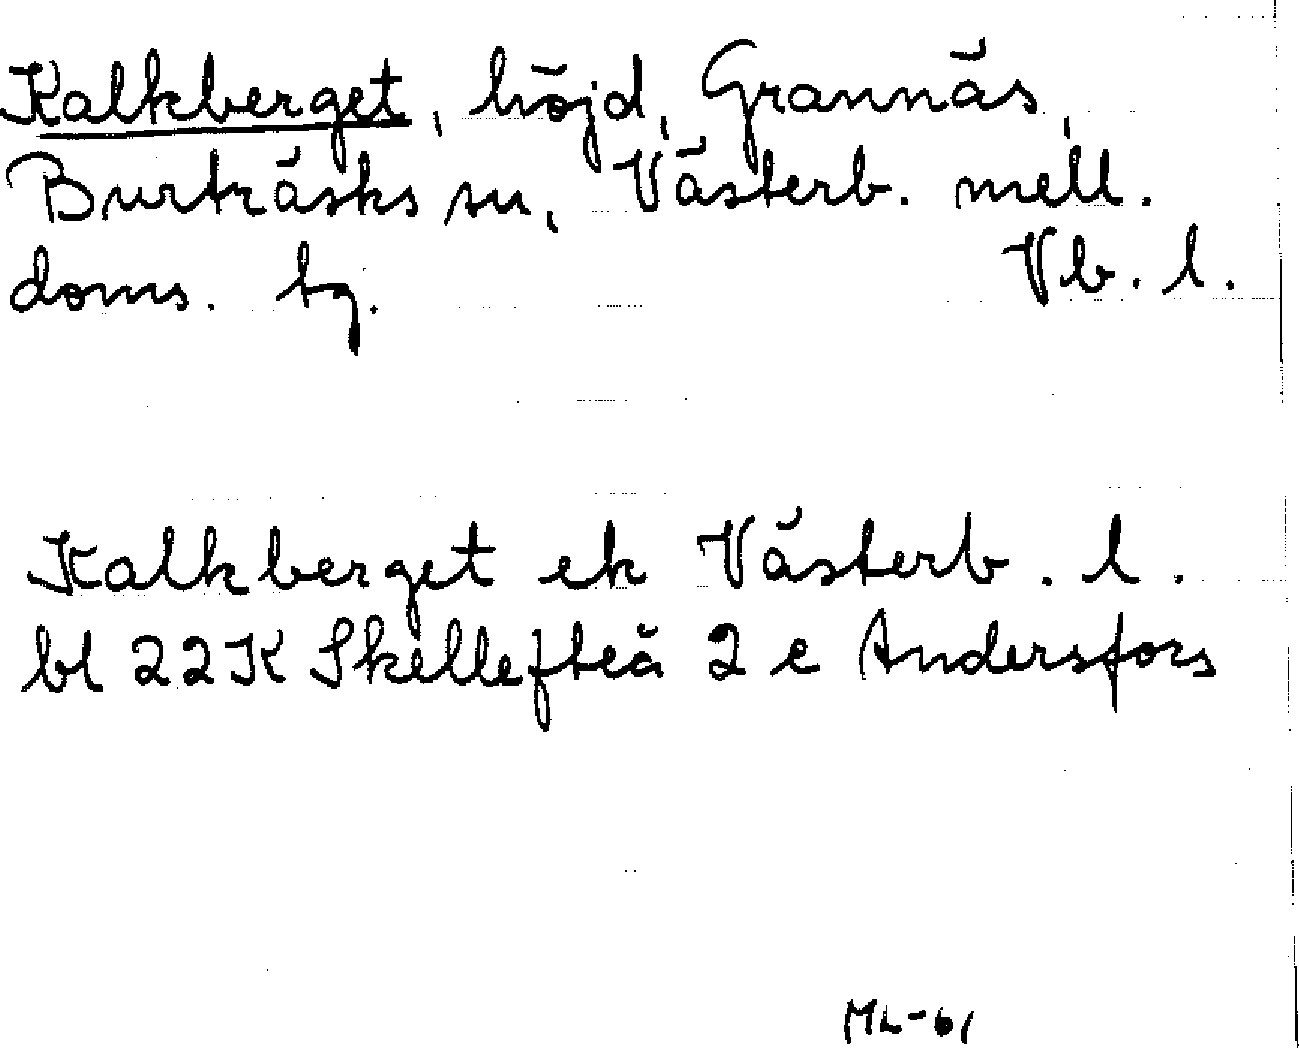 Kalkberget, höjd, Grannäs,
Burträsks sn, Västerb. mell.
doms. tg. Vb. l.
Kalkberget ek Västerb. l.
bl 22K Skellefteå 2 e Andersfors
ML-61